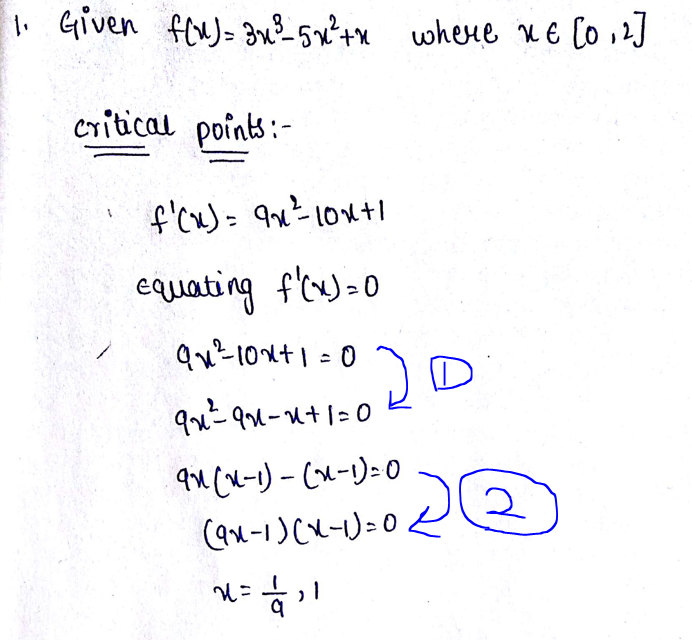 1. Given f(x) = 3x³-5x²+x where x ∈ [0,2]
critical points:-
f'(x) = 9x²-10x+1
equating f'(x)=0
9x²-10x+1=0
1
9x²-9x-x+1=0
9x(x-1)-(x-1)=0
2
(9x-1)(x-1)=0
x = 1/9, 1